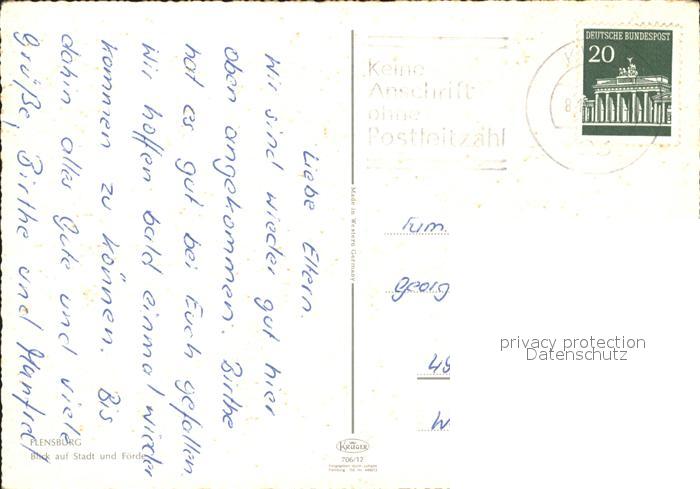 Liebe Eltern.
Wir sind wieder gut hier
oben angekommen. Birthe
hat es gut bei Euch gefallen.
Wir hoffen bald einmal wieder
kommen zu können. Bis
dahin alles Gute und viele
Grüße, Birthe und Manfred
FLENSBURG
Blick auf Stadt und Förde
Made in Western Germany
KRÜGER
706/12
Keine
Anschrift
ohne
Postleitzahl
DEUTSCHE BUNDESPOST
20
Fam.
Georg
privacy protection
Datenschutz